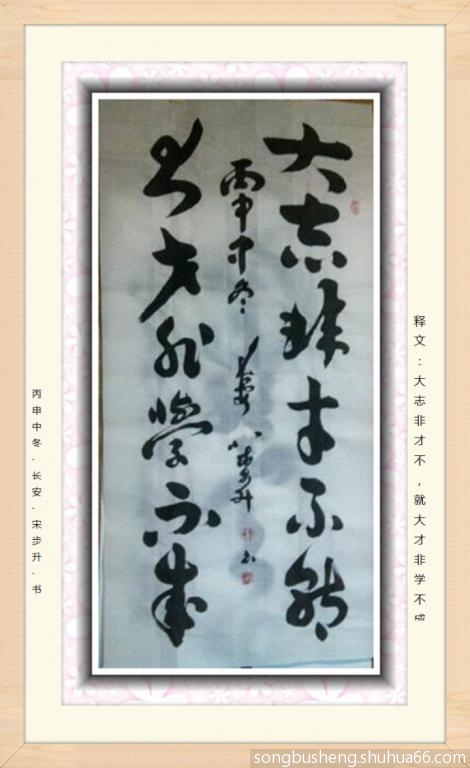 释文：大志非才不，就大才非学不成
大志非才不就
丙申中冬 长安 宋步升 书
大才非學不成
丙申中冬.长安.宋步升.书
songbusheng.shuhua66.com